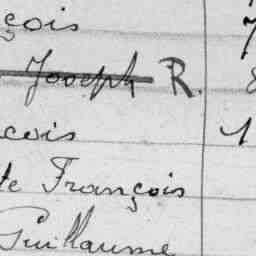 çois
Joseph R.
cois 1
te François
Guillaume